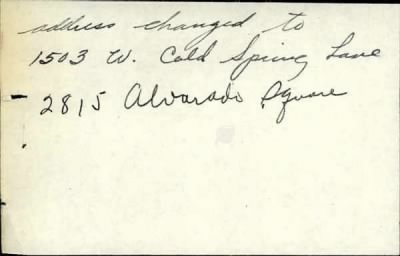 address changed to
1503 W. Cold Spring Lane
2815 Alvarado Square